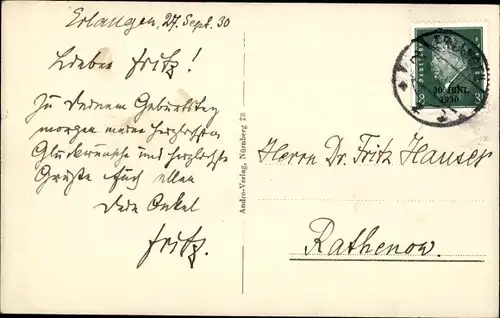 Erlangen, 27. Sept. 30
Lieber Fritz!
Zu Deinem Geburtstag
morgen meine herzlichsten
Glückwünsche und herzlichste
Grüße Euch allen
Dein Onkel
Fritz.
Andro-Verlag, Nürnberg 28
30. JUNI
1930
Herrn Dr. Fritz Hauser
Rathenow.